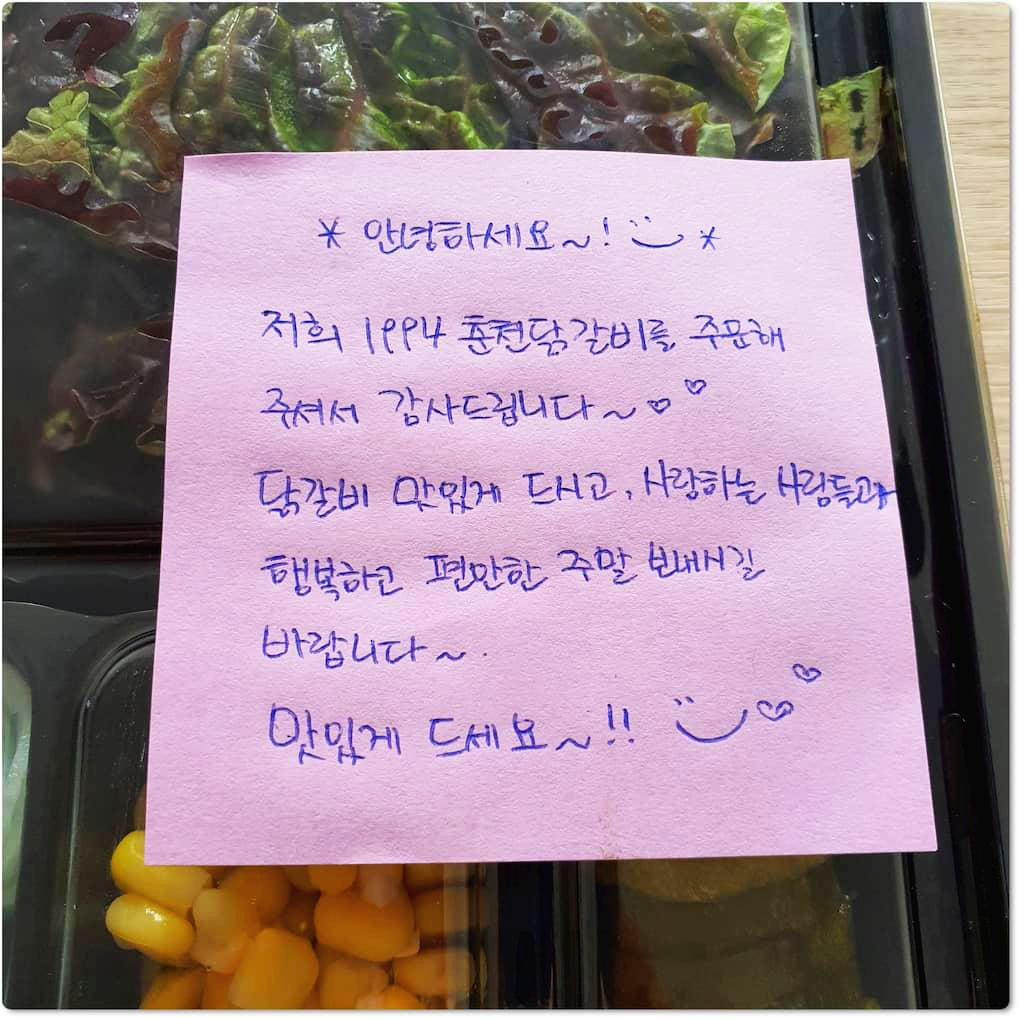 * 안녕하세요~! *
저희 1994 춘천닭갈비를 주문해
주셔서 감사드립니다~♡♡
닭갈비 맛있게 드시고, 사랑하는 사람들과
행복하고 편안한 주말 보내시길
바랍니다~.
맛있게 드세요~!! ♡♡